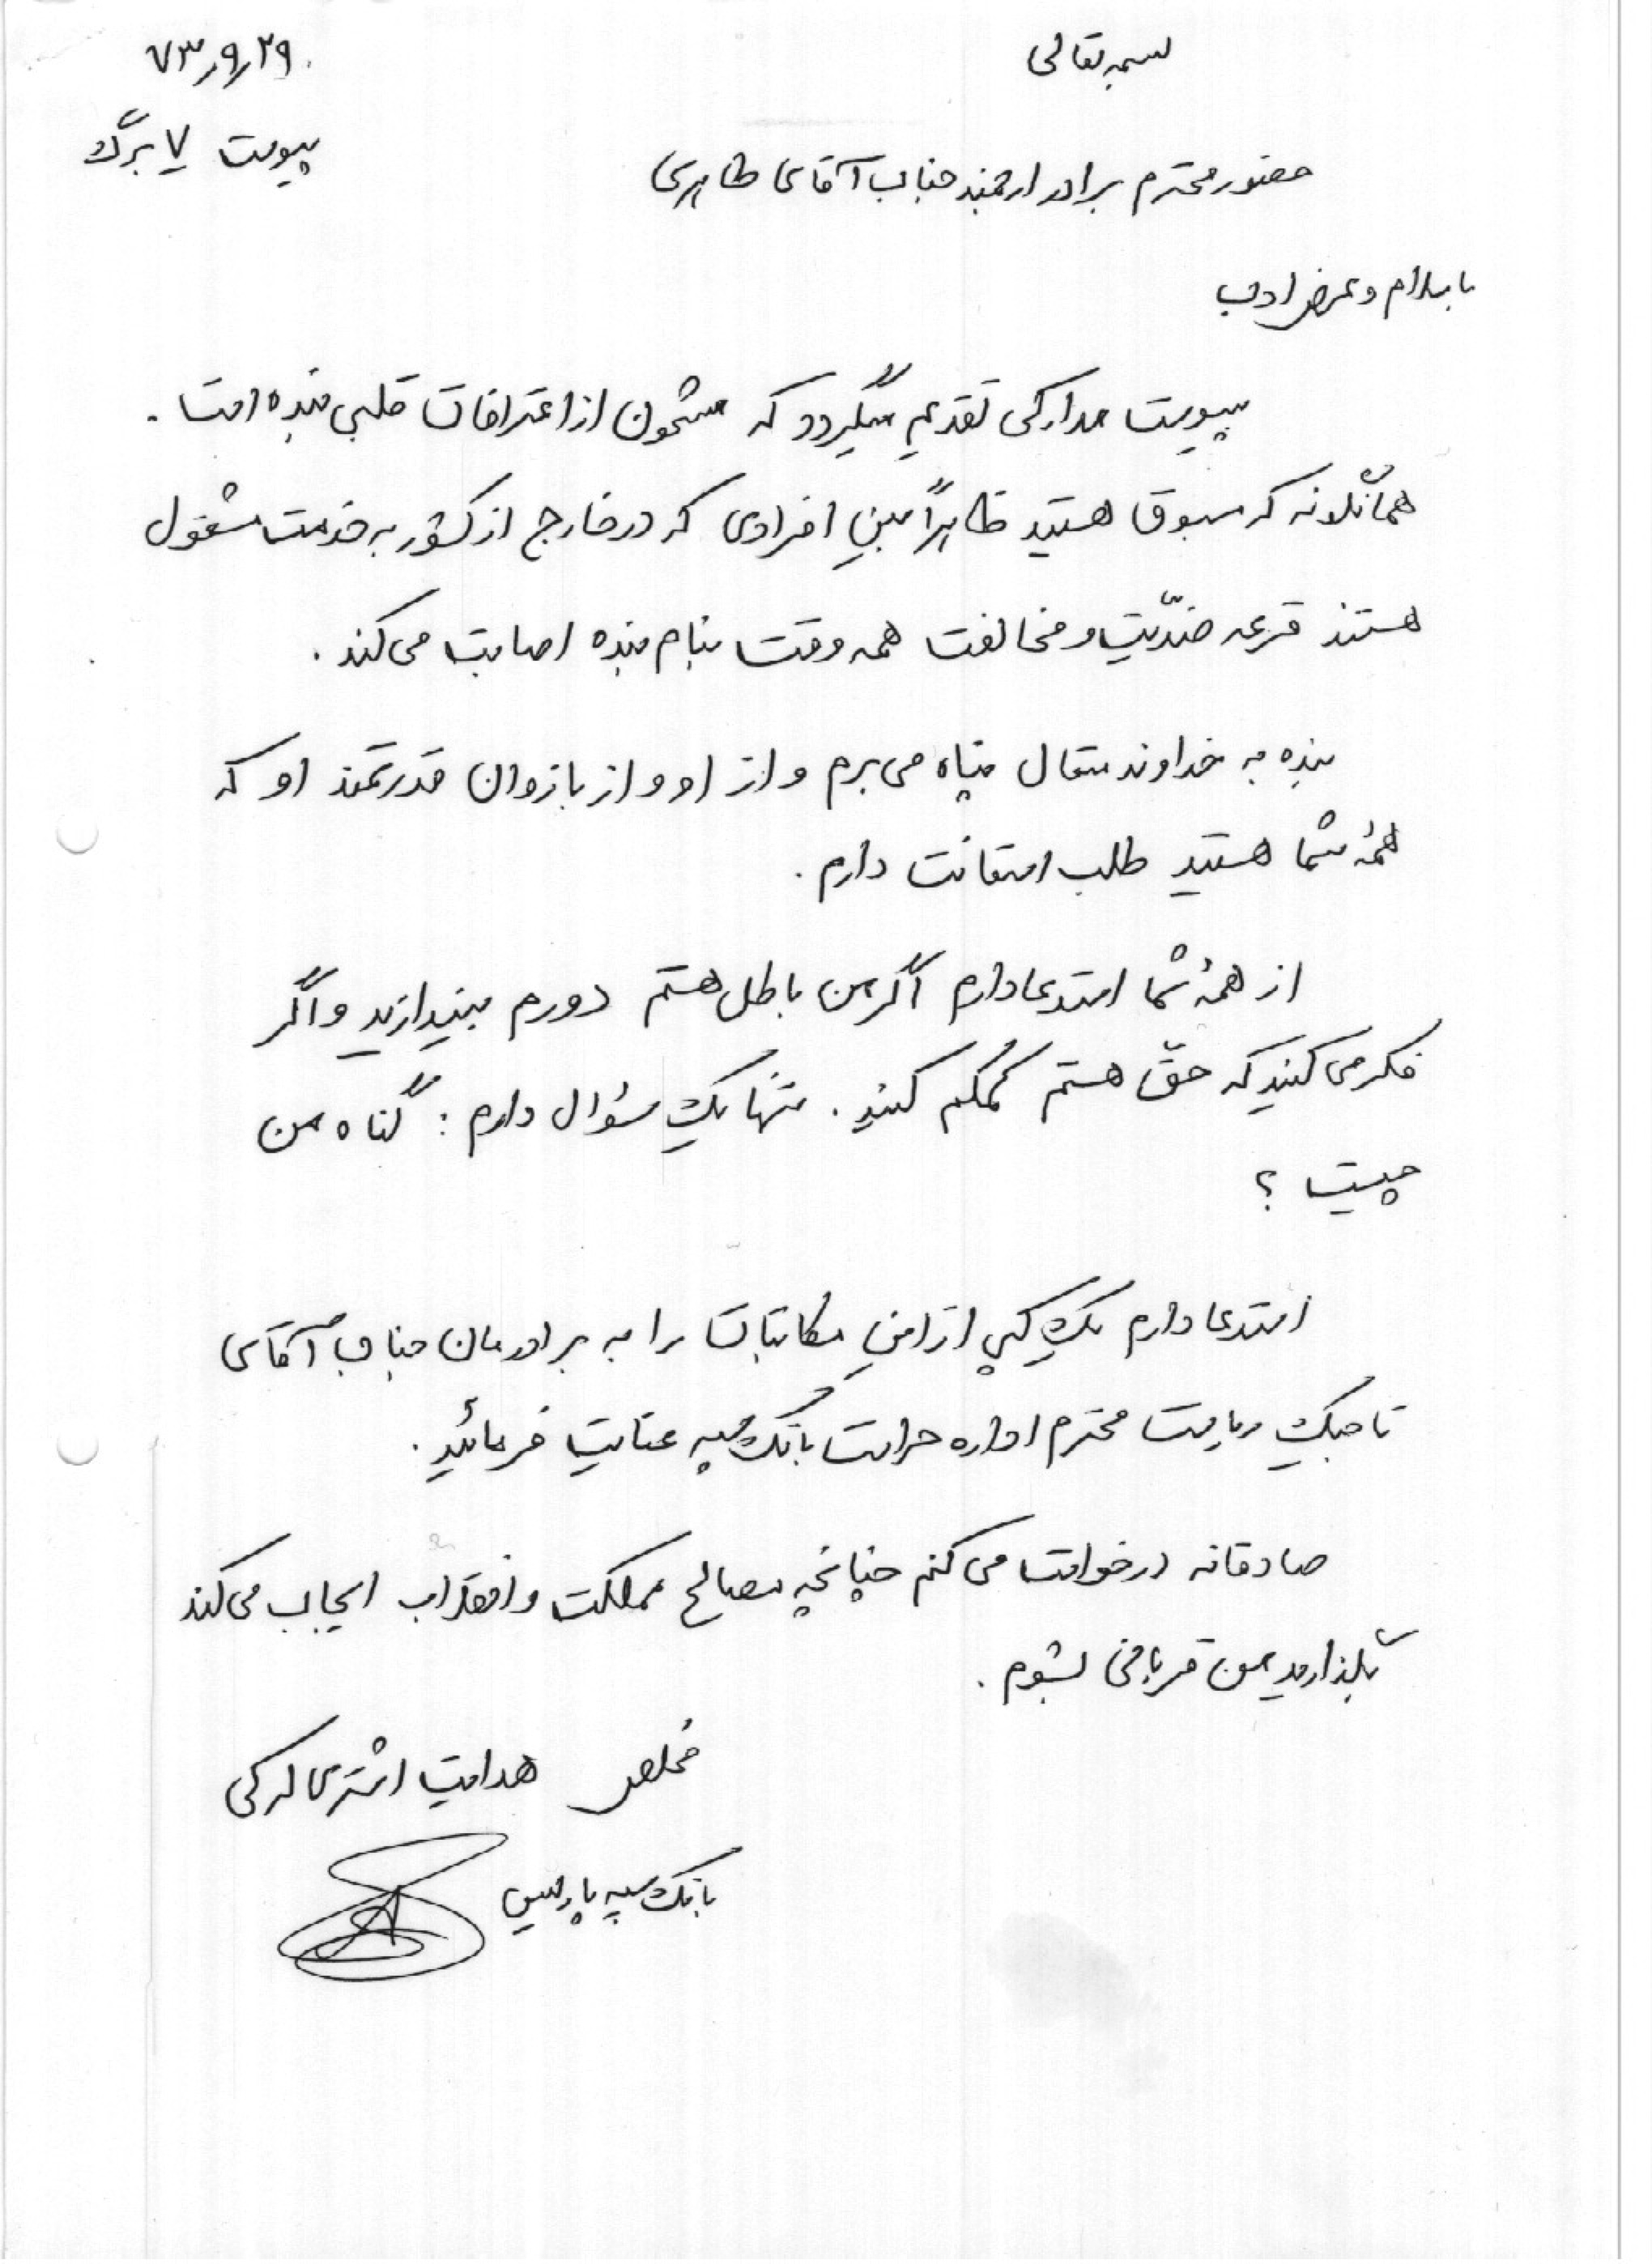 بسمه تعالی
۷۳٫۹٫۲۹
پیوست ۷ برگ
حضور محترم برادر ارجمند جناب آقای طاهری
با سلام و عرض ادب
پیوست مدارکی تقدیم میگردد که مشحون از اعترافات قلبی بنده است .
همانگونه که مسبوق هستید ظاهراً بینِ افرادی که در خارج از کشور به خدمت مشغول
هستند قرعه ضدّیت و مخالفت همه وقت بنام بنده اصابت می کند .
بنده به خداوند متعال پناه می برم و از او و از بازوان قدرتمند او که
همهٔ شما هستید طلب استعانت دارم .
از همهٔ شما استدعا دارم اگر من باطل هستم دورم بیندازید و اگر
فکر می کنید که حقّ هستم کمکم کنید . تنها یک سؤال دارم : گناه من
چیست ؟
استدعا دارم یک کپی از این مکاتبات را به برادرمان جناب آقای
تاجیک ریاست محترم اداره حراست بانک سپه عنایت فرمائید .
صادقانه درخواست می کنم چنانچه مصالح مملکت و انقلاب ایجاب می کند
بگذارید من قربانی بشوم .
مخلص هدایت اشتری لرکی
بانک سپه پاریس